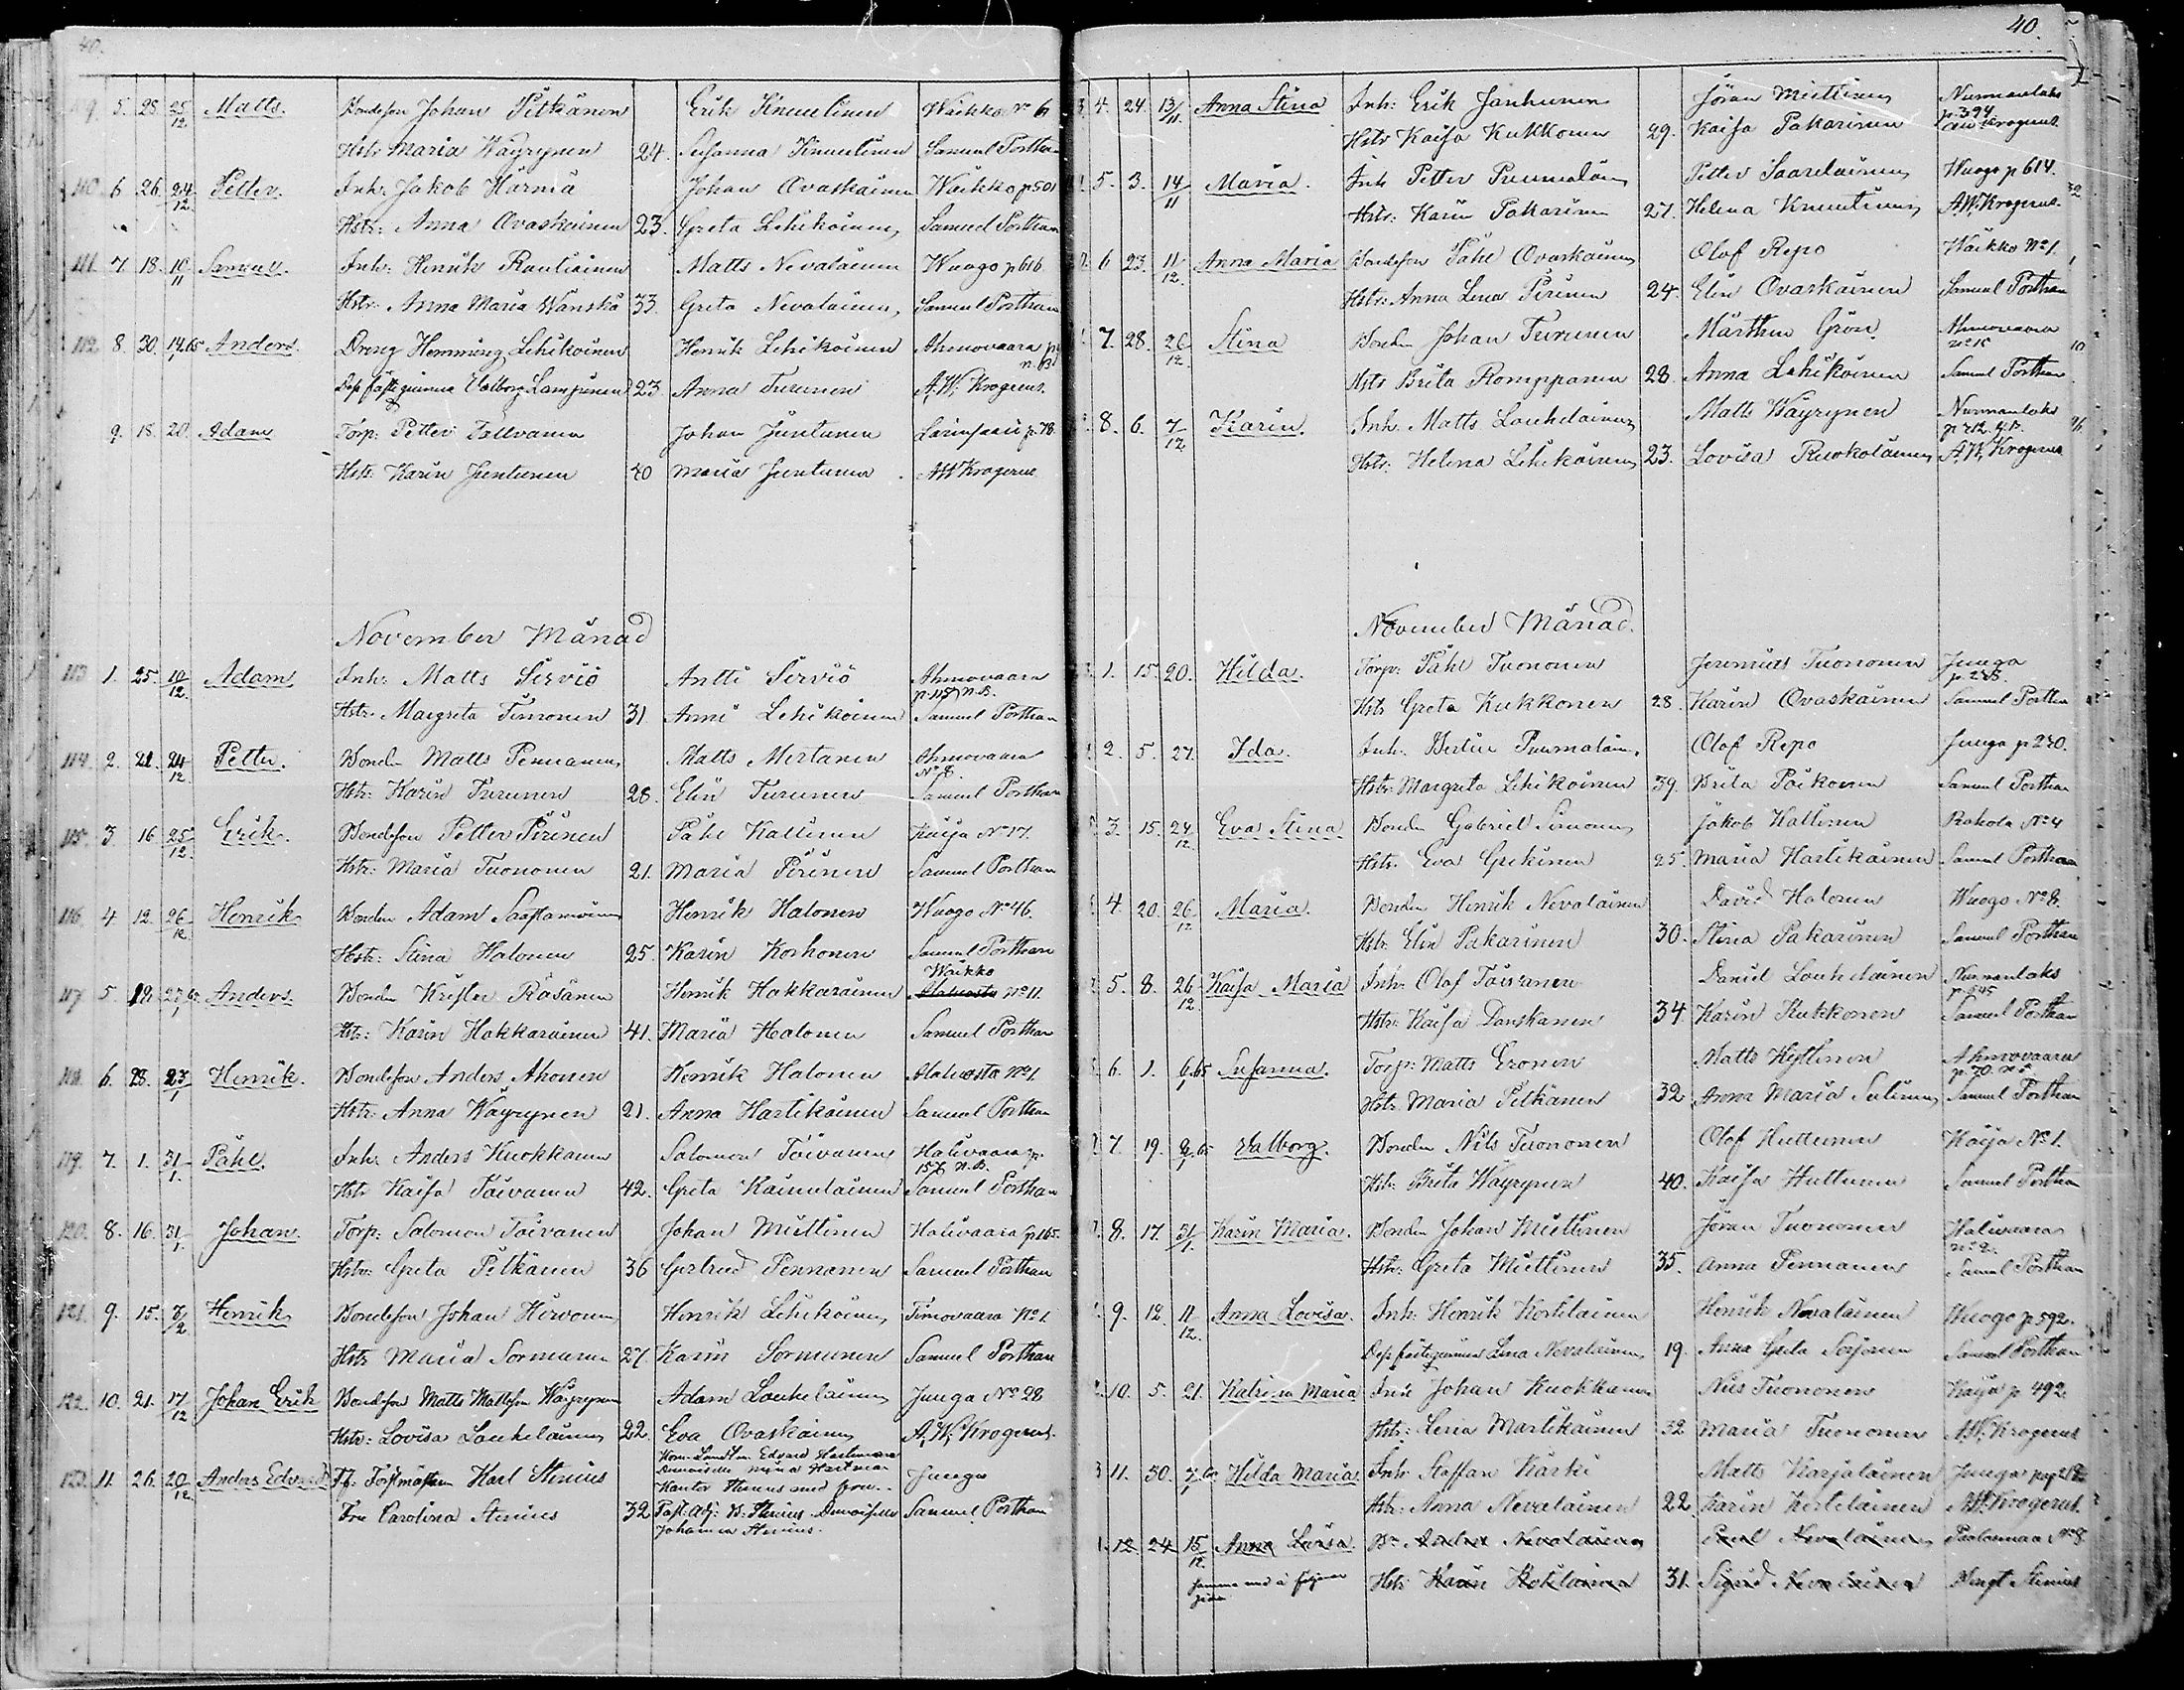 40.
109. 5. 28. 25/12 Matts. Bondeson Johan Pitkänen Erik Kinnulinen Waikko No 6
Hstr Maria Wäyrynen 24. Susanna Kinnulinen Samuel Porthan
110. 6. 26. 24/12 Petter. Inh: Jakob Härmä Johan Ovaskainen Waikko p 501
Hstr: Anna Ovaskainen 23. Greta Lehikoinen Samuel Porthan
111. 7. 18. 10/11 Samuel. Inh: Henrik Rautiainen Matts Nevalainen Wuogo p 616
Hstr: Anna Maria Wänskä 33. Greta Nevalainen, Samuel Porthan
112. 8. 30. 14/1 65 Anders. Dreng Hemming Lehikoinen Henrik Lehikoinen Ahmovaara
Dess fästeqvinna Valborg Lampinen 23 Anna Turunen A. W. Krogerus.
9. 18. 20. Adam Torp: Petter Tallvanen Johan Juntunen p. 78.
Hstr: Karin Juntunen 40 Maria Juntunen. AW Krogerus
November Månad
113. 1. 25. 10/12. Adam Inh: Matts Sirviö Antti Sirviö Ahmovaara
p. 115 n. B.
Hstr. Margreta Timonen 31. Anni Lehikoinen Samuel Porthan
114. 2. 21. 24/12 Petter. Bonden Matts Pennanen, Matts Mertanen Ahmovaara
No 8.
Hstr: Karin Turunen 28. Elin Turunen Samuel Porthan
115. 3. 16. 25/12. Erik. Bondeson Petter Piirinen Påhl Kallinen Kaija No 17.
Hstr: Maria Tuononen 21. Maria Piirinen Samuel Porthan
116. 4. 12. 26/12 Henrik Bonden Adam Saastamoinen Henrik Halonen Wuogo No 46.
Hstr: Stina Halonen 25. Karin Korhonen Samuel Porthan
Waikko
117 5. 19. 27/1 65 Anders. Bonden Krister Räsänen Henrik Hakkarainen Alakvosta No 11.
Hstr: Karin Hakkarainen 41. Maria Halonen Samuel Porthan
118. 6. 28. 23/1 Henrik. Bondeson Anders Ahonen Henrik Halonen No 1.
Hstr: Anna Wäyrynen 21. Anna Hartikainen Samuel Porthan
119. 7. 1. 31/1. Påhl. Inh: Anders Kuokkanen Salomon Toivanen Halivaara p.
157 n. B.
Hstr Kaisa Toivanen 42. Greta Kainulainen Samuel Porthan
120. 8. 16. 31/1. Johan. Torp: Salomon Toivanen Johan Miettinen Halivaara p 165.
Hstr: Greta Pitkänen 36 Gertrud Pennanen Samuel Porthan
121. 9. 15. 3/2 Henrik Bondeson Johan Hirvonen Henrik Lehikoinen Timovaara No 1.
Hstr Maria Sormunen 27. Karin Sormunen Samuel Porthan
122. 10. 21. 17/12 Johan Erik Bondeson Matts Mattsson Wäyrynen Adam Louhelainen Junga No 28
Hstr: Lovisa Louhelainen 22. Eva Ovaskainen A. W. Krogerus.
Edvard Hartman
Demoiselle Mina Hartman
123. 11. 26. 20/12 Anders Edvard Tf. Forstmästaren Karl Stenius Kantor Stenius med fru Junga
Fru Carolina Stenius 32 Past. Adj: B: Stenius. Demoiselle Samuel Porthan
Johanna Stenius.
40.
4. 24. 13/11. Anna Stina Inh: Erik Janhunen Jöran Miettinen Nurmanlaks
p. 394
Hstr Kaisa Kukkonen 29. Kaisa Pakarinen AW Krogerus.
5. 3. 14/11 Maria. Inh Petter Puumalainen Petter Saarelainen Wuogo p 614.
Hstr: Karin Pakarinen 27. Helena Knuutinen A. W. Krogerus.
6 23. 11/12. Anna Maria Bondeson Påhl Ovaskainen Olof Repo Waikko No 1.
Hstr: Anna Lena Piirinen 24. Elin Ovaskainen Samuel Porthan
7. 28. 26/12 Stina Bonden Johan Turunen Mårthen Grön Ahmovaara
Hstr Brita Romppanen 28. Anna Lehikoinen Samuel Porthan
8. 6. 7/12 Karin. Inh: Matts Louhelainen Matts Wäyrynen Nurmanlaks
Hstr: Helena Lehikoinen 23. Lovisa Ruokolainen A. W. Krogerus
November Månad.
1. 15. 20. Hilda. Torp: Påhl Tuononen Jeremias Tuononen Junga
Hstr Greta Kukkonen 28. Karin Ovaskainen Samuel Porthan
2. 5. 27. Ida. Inh: Bertil Puumalain. Olof Repo Junga p 230.
Hstr: Margreta Lehikoinen 39. Brita Poikonen Samuel Porthan
3. 15. 24/12 Eva Stina Bonden Gabriel Simonen Jakob Kallinen Rahola No 4
Hstr: Eva Gickinen 25. Maria Hartikainen Samuel Porthan
4. 20. 26/12 Maria. Bonden Henrik Nevalainen David Halonen Wuogo No 8.
Hstr: Elin Pakarinen 30. Stina Pakarinen Samuel Porthan
5. 8. 26/12 Kaisa Maria Inh: Olof Toivanen Daniel Louhelainen Nurmanlaks
p. 545
Hstr: Kaisa Danskanen 34 Karin Kukkonen Samuel Porthan
6. 1. 6/1 65 Susanna. Torp: Matts Eronen Matts Kyllinen Ahmovaara
p. 70.
Hstr: Maria Pitkänen 32 Anna Maria Sutinen Samuel Porthan
7. 19. 9/1 65 Valborg. Bonden Nils Tuononen Olof Huttunen Kaija No 1.
Hstr: Brita Wäyrynen 40. Kaisa Huttunen Samuel Porthan
8. 17. 31/1. Karin Maria. Bonden Johan Miettinen Jöran Tuononen Halivaara
No 2.
Hstr: Greta Miettinen 35. Anna Pennanen Samuel Porthan
9. 12. 11/12. Anna Lovisa. Inh: Henrik Kortelainen Henrik Nevalainen Wuogo p 592.
Dess fästeqvinna Lena Nevalainen 19. Anna Greta Sorjonen Samuel Porthan
10. 5. 21. Katrina Maria Inh: Johan Kuokkanen Nils Tuononen Kaija p 492.
Hstr: Lena Martikainen 32 Maria Tuononen A. W. Krogerus
11. 30. 7/1 65 Hilda Maria Inh: Staffan Kärki Matts Karjalainen Junga pag 212
Hstr: Anna Nevalainen 22. Karin Kortelainen A. W. Krogerus.
12. 24 15/12. Anna Lovisa. Nevalainen Paul Nevalainen No 8
Hstr: Karin 31. Sigrid Nevalainen Bengt Stenius